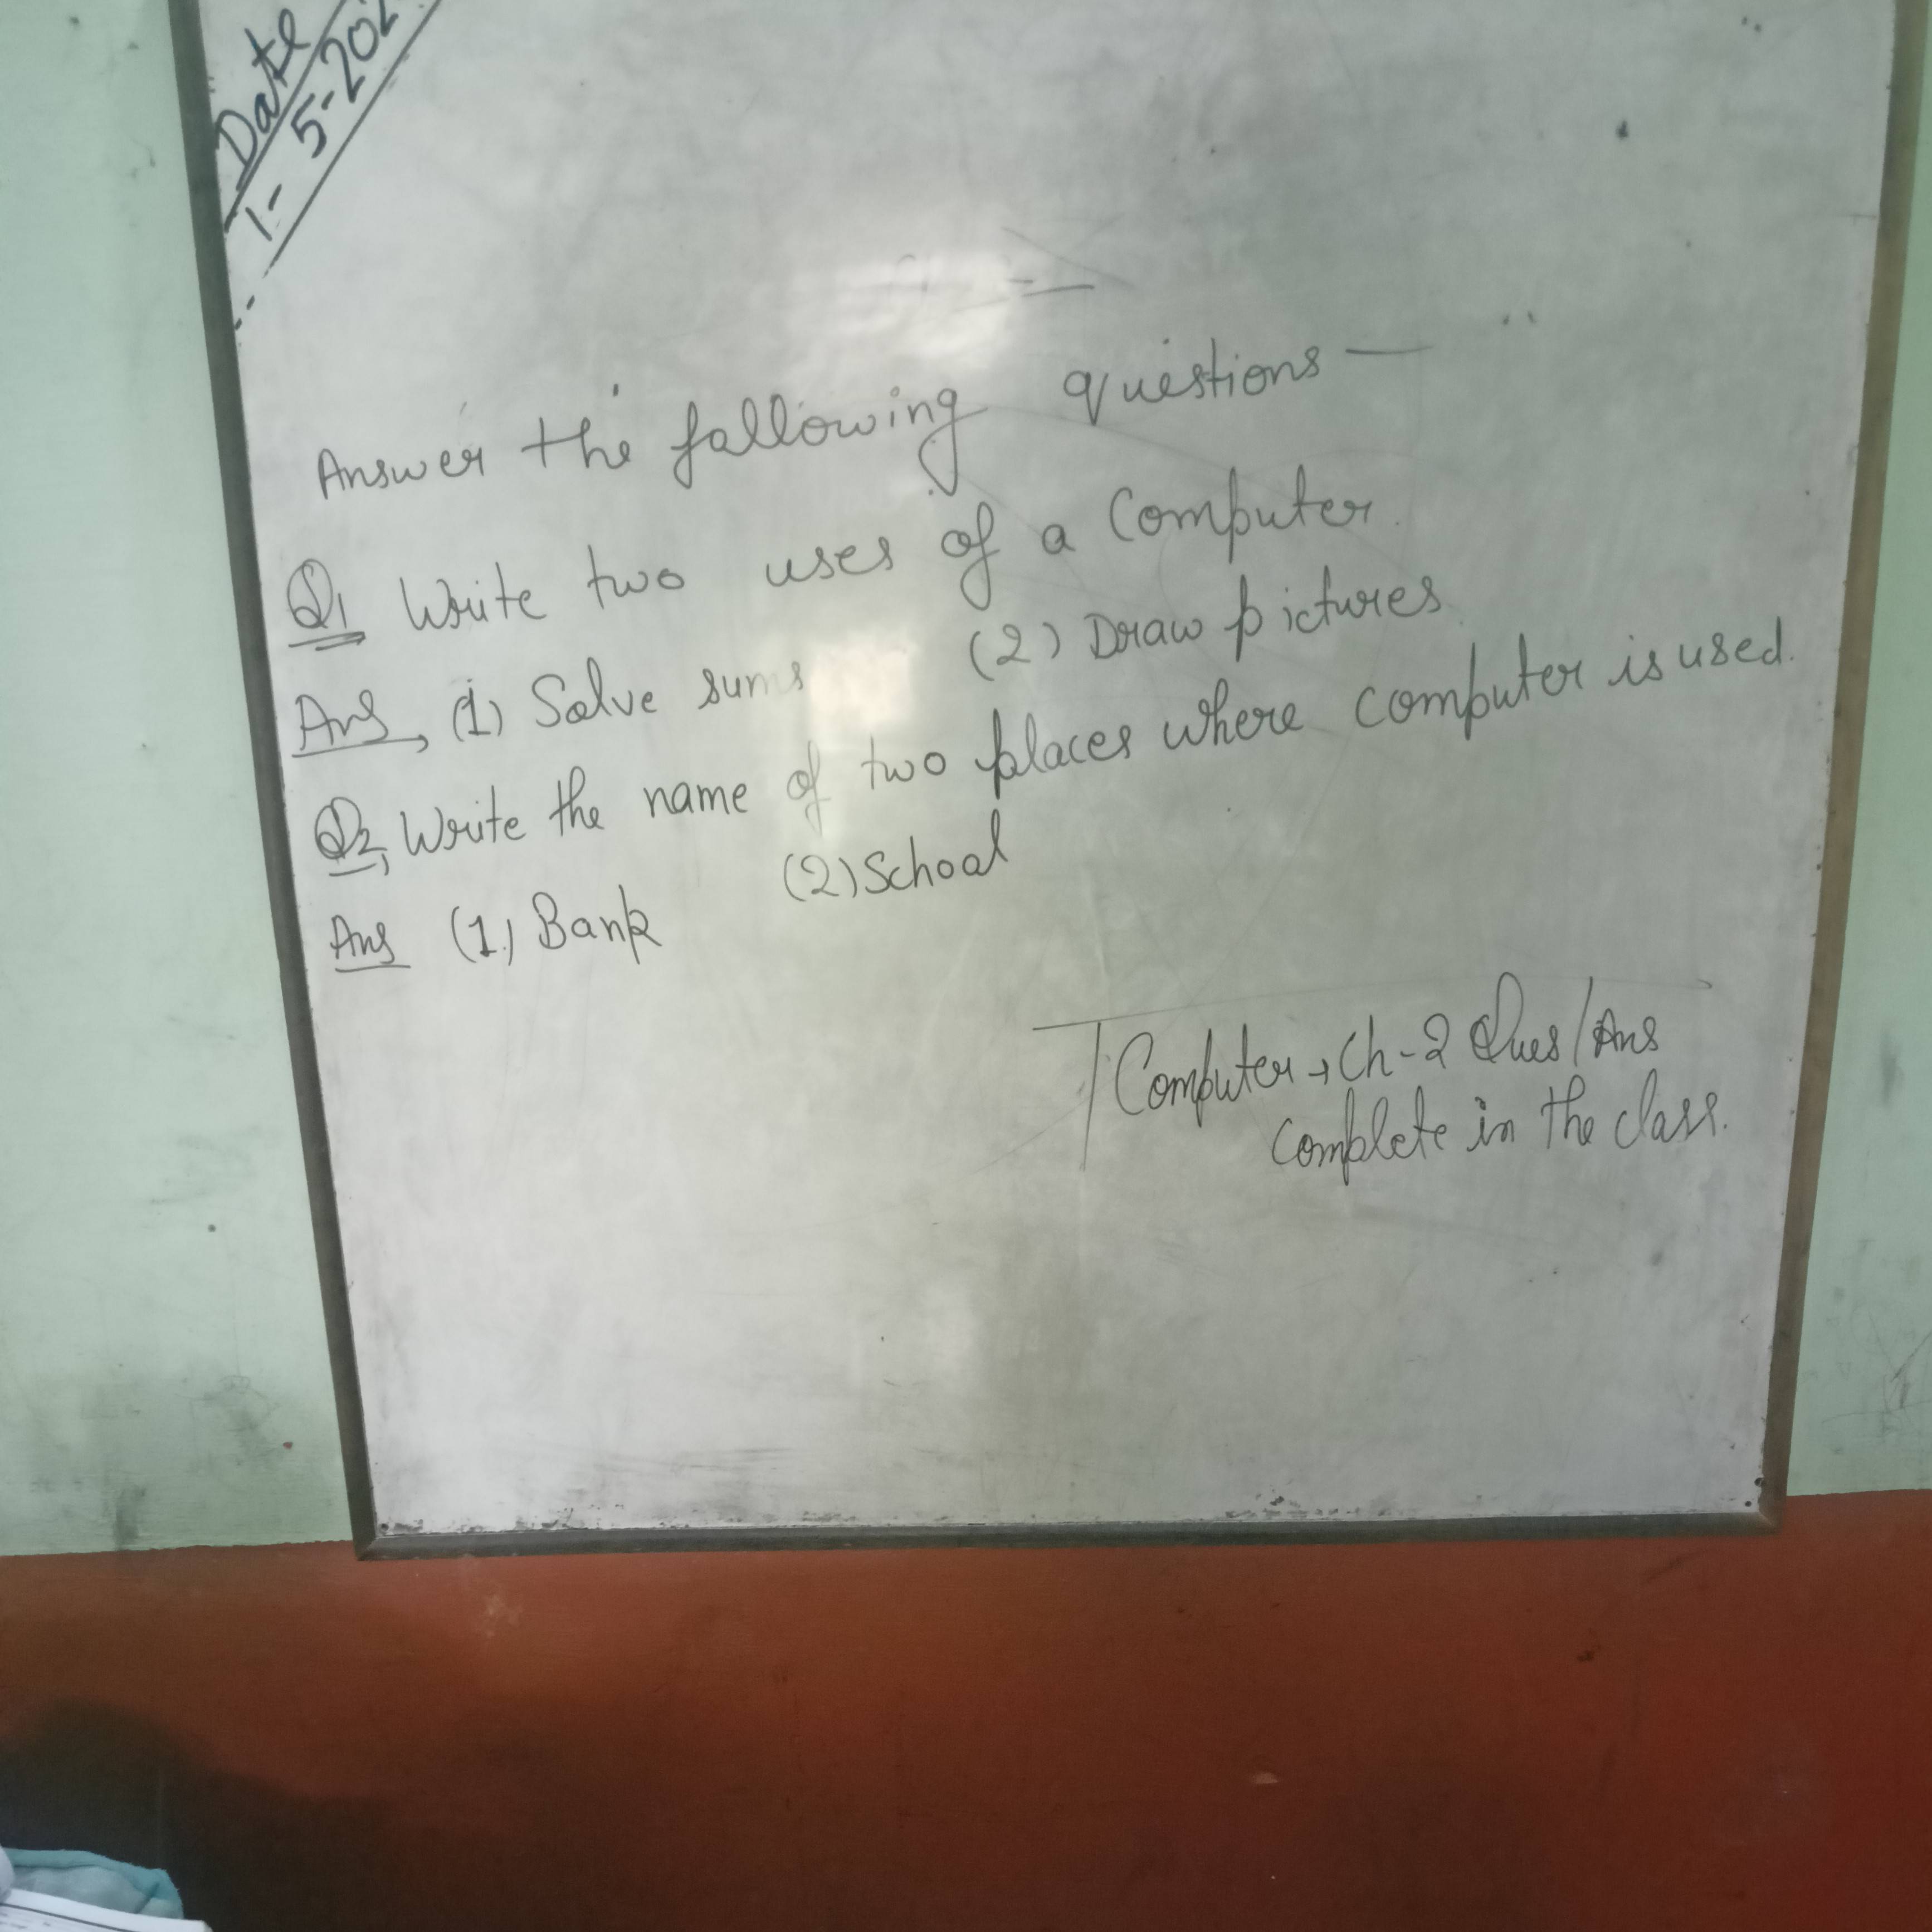 Date
1-5-202
Answer the following questions —
Q1 Write two uses of a Computer.
Ans, (1) Solve sums (2) Draw pictures
Q2, Write the name of two places where computer is used.
Ans (1) Bank (2) School
Computer → Ch-2 Ques/Ans
Complete in the class.